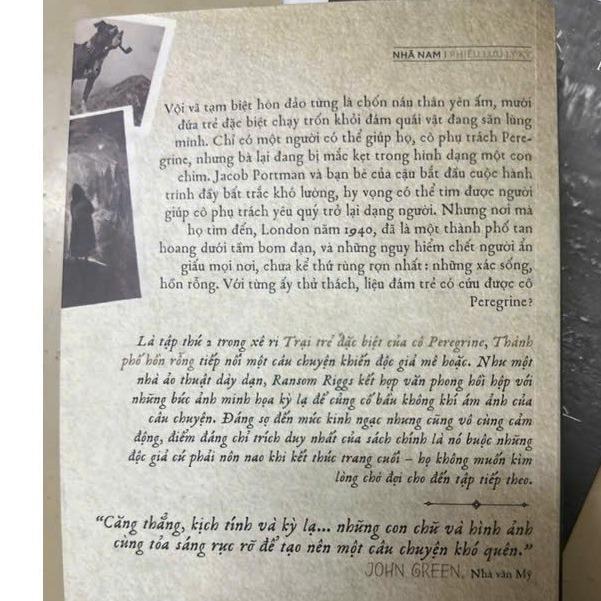 NHÃ NAM | PHIÊU LƯU LY KỲ
Vội vã tạm biệt hòn đảo từng là chốn náu thân yên ấm, mười
đứa trẻ đặc biệt chạy trốn khỏi đám quái vật đang săn lùng
mình. Chỉ có một người có thể giúp họ, cô phụ trách Pere-
grine, nhưng bà lại đang bị mắc kẹt trong hình dạng một con
chim. Jacob Portman và bạn bè của cậu bắt đầu cuộc hành
trình đầy bất trắc khó lường, hy vọng có thể tìm được người
giúp cô phụ trách yêu quý trở lại dạng người. Nhưng nơi mà
họ tìm đến, London năm 1940, đã là một thành phố tan
hoang dưới tầm bom đạn, và những nguy hiểm chết người ẩn
giấu mọi nơi, chưa kể thứ rùng rợn nhất: những xác sống,
hồn rỗng. Với từng ấy thử thách, liệu đám trẻ có cứu được cô
Peregrine?
Là tập thứ 2 trong xê ri Trại trẻ đặc biệt của cô Peregrine, Thành
phố hồn rỗng tiếp nối một câu chuyện khiến độc giả mê hoặc. Như một
nhà ảo thuật dày dạn, Ransom Riggs kết hợp văn phong hồi hộp với
những bức ảnh minh họa kỳ lạ để củng cố bầu không khí ám ảnh của
câu chuyện. Đáng sợ đến mức kinh ngạc nhưng cũng vô cùng cảm
động, điểm đáng chỉ trích duy nhất của sách chính là nó buộc những
độc giả cứ phải nôn nao khi kết thúc trang cuối – họ không muốn kìm
lòng chờ đợi cho đến tập tiếp theo.
“Căng thẳng, kịch tính và kỳ lạ... những con chữ và hình ảnh
cùng tỏa sáng rực rỡ để tạo nên một câu chuyện khó quên.”
JOHN GREEN, Nhà văn Mỹ